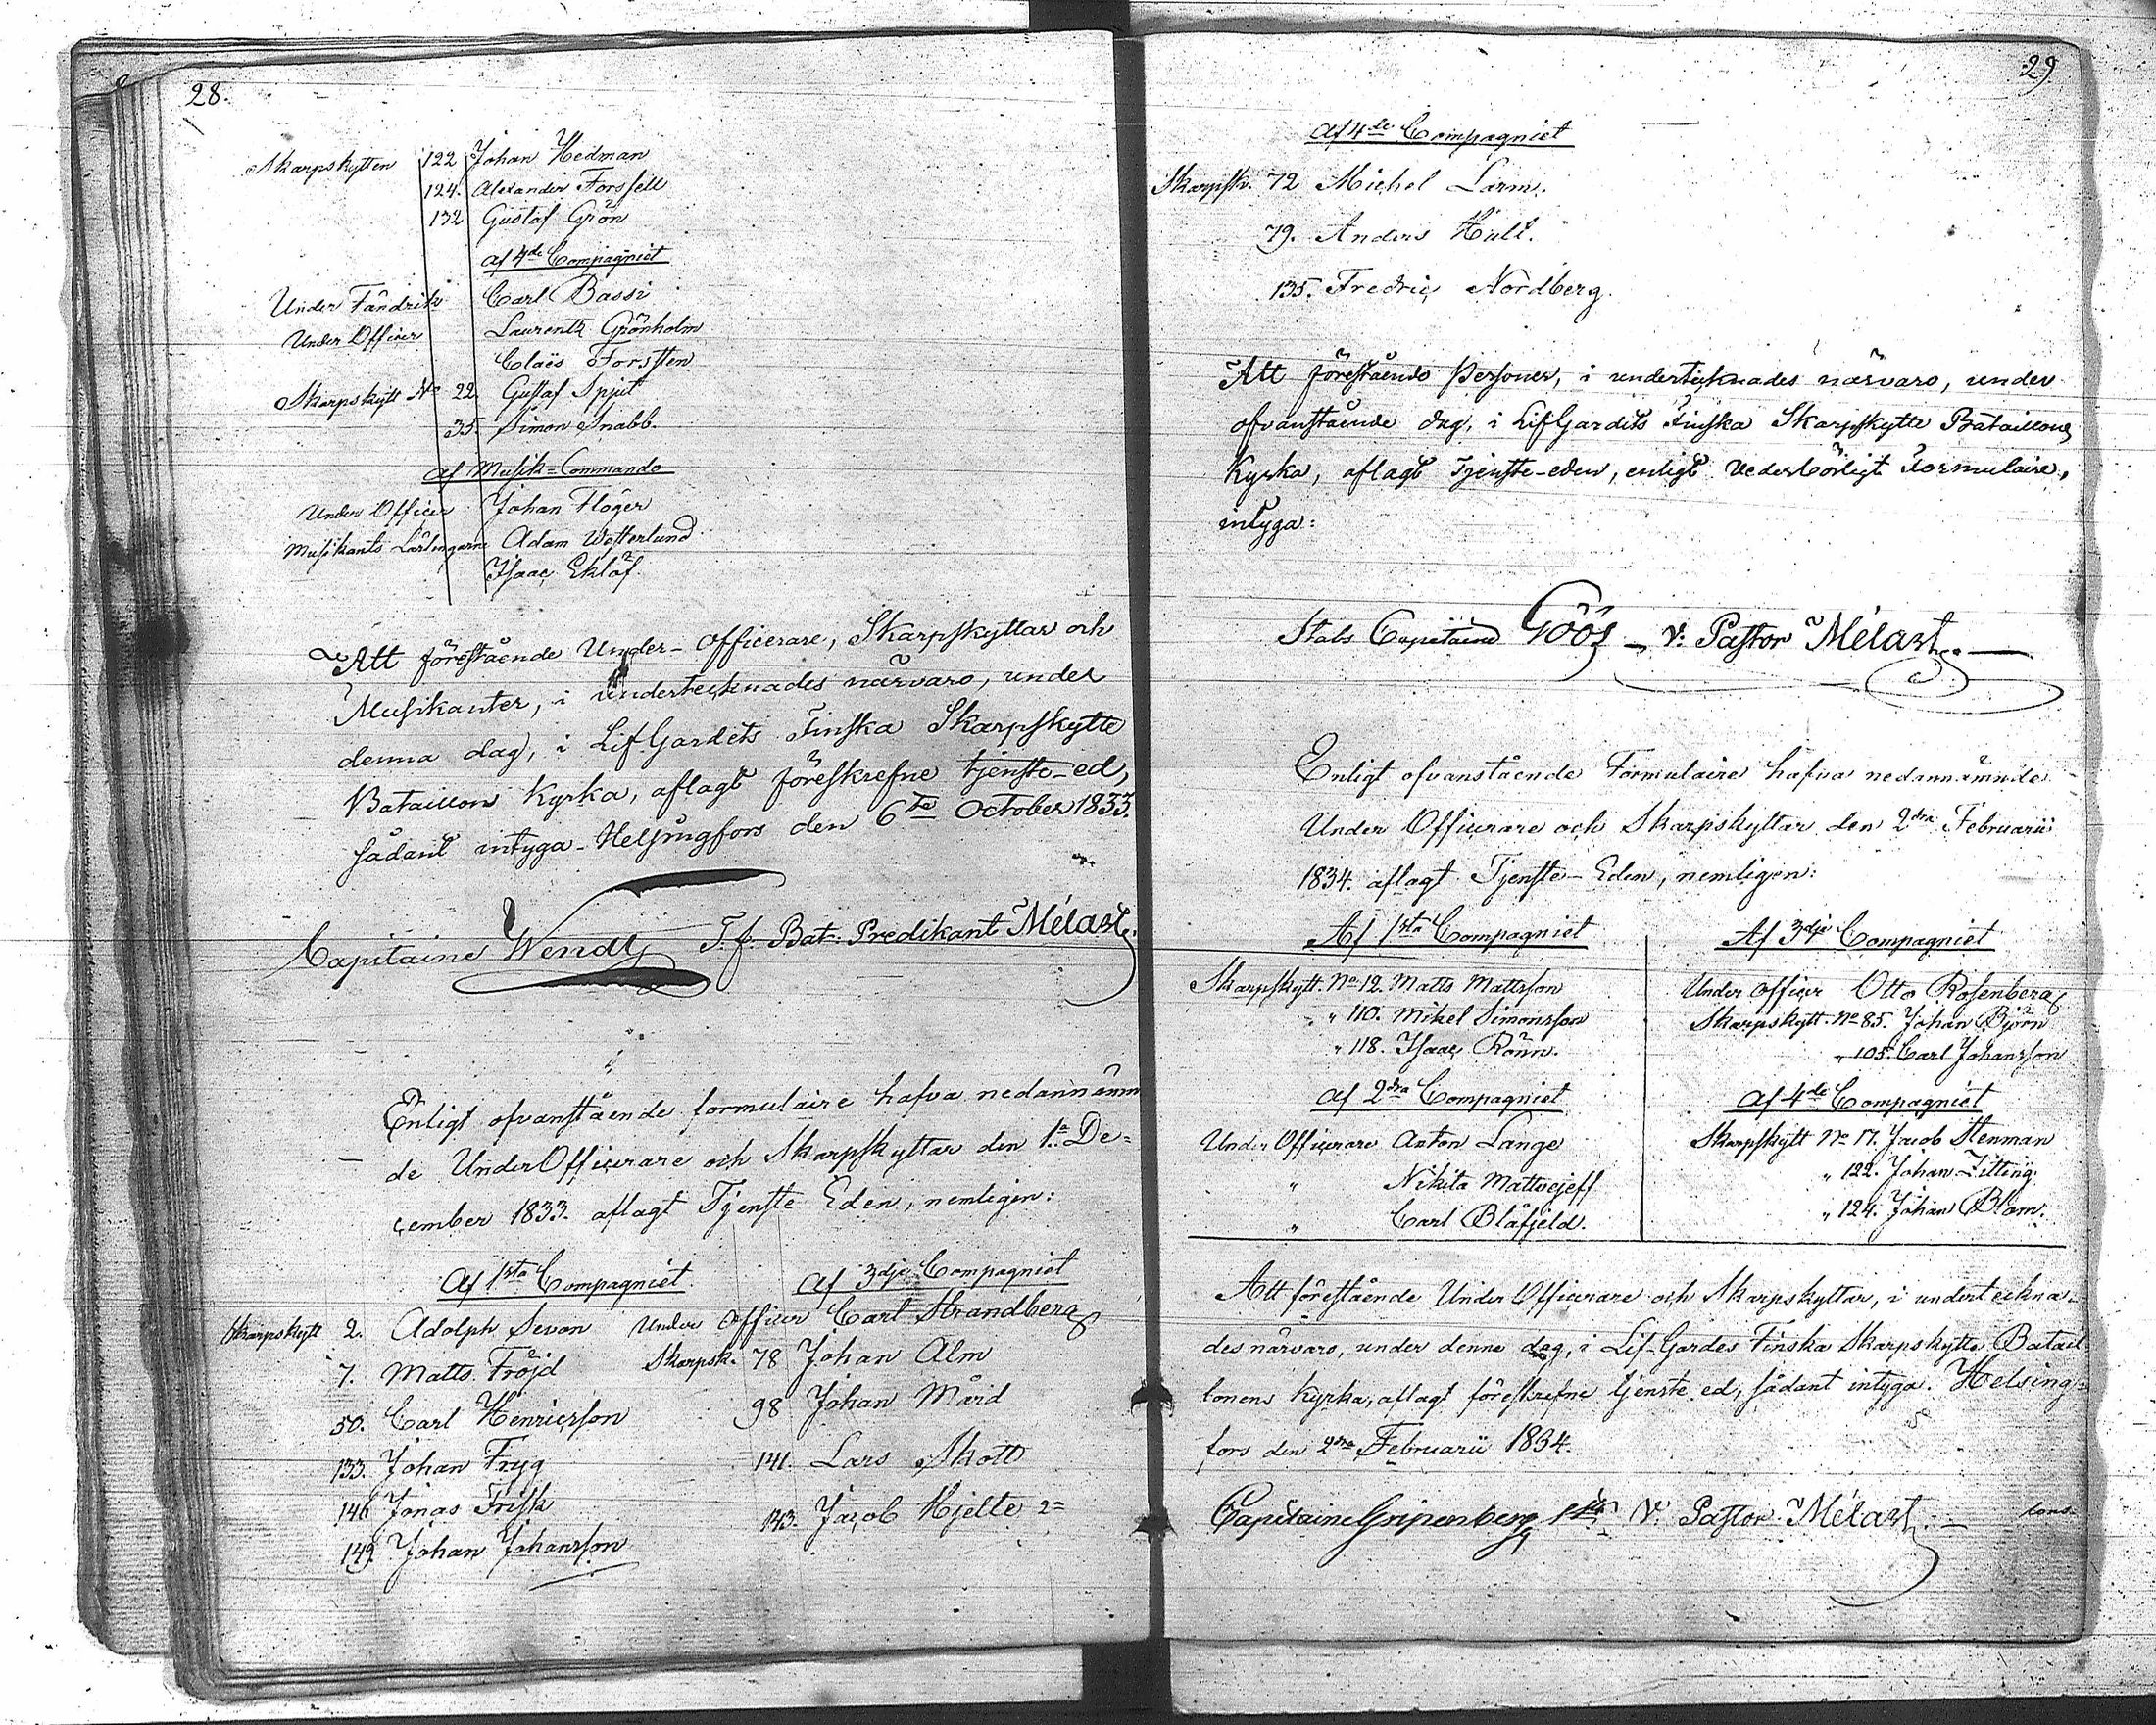 28.
Skarpskytten 122 Johan Hedman
124. Alexander Forssell
132 Gustaf Grön
af 4de Compagniet
Under Fändrik Carl Bassi
Under Officer Laurentz Grönholm
Claës Forssten
Skarpskytt No 22. Gustaf Spjut
35. Simon Snabb.
af Musik=Commando
Under Officer Johan Flöger
Musikants Lärlingarne Adam Westerlund
Isaac Eklöf.
Att förestående Under-Officerare, Skarpskyttar och
Musikanter, i undertecknades närvaro, under
denna dag, i Lif-Gardets Finska Skarpskytte
Bataillon Kyrka, aflagt föreskrefne tjenste-ed,
sådant intyga. Helsingfors den 6te October 1833.
Capitaine Wendt T.f. Bat: Predikant Mélart.
Enligt ofvanstående formulaire hafva nedannämn
de Under Officerare och Skarpskyttar den 1a De=
cember 1833. aflagt Tjenste Eden, nemligen:
Af 1sta Compagniet. af 3dje Compagniet
Skarpskytt 2. Adolph Sevon Under Officer Carl Strandberg
7. Matts Fröjd Skarpsk. 78 Johan Alm
50. Carl Henricsson 98 Johan Mård
133. Johan Fryg 141. Lars Skott
146 Jonas Frisk 143. Jacob Hjelte 2=
149 Johan Johansson
29
Af 4de Compagniet
Skarpsk. 72 Michel Larm.
79. Anders Hult.
135. Fredric Nordberg.
Att förestående Personer, i undertecknades närvaro, under
ofvanstående dag, i LifGardets Finska Skarpskytte Bataillons
Kyrka, aflagt Tjenste-eden, enligt vederbörligt Formulaire,
intyga:
Stabs Capitaine Göös - V: Pastor Mélart. —
Enligt ofvanstående Formulaire hafva nedannämnde
Under Officerare och Skarpskyttar den 2dra Februarii
1834. aflagt Tjenste-Eden, nemligen:
Af 1sta Compagniet Af 3dje Compagniet
Skarpskytt. No 12. Matts Mattsson Under Officer Otto Rosenberg
" 110. Mikel Simonsson Skarpskytt. No 85. Johan Björn
" 118. Isaac Rönn. " 105. Carl Johansson
af 2dra Compagniet Af 4de Compagniet
Under Officerare Anton Lange Skarpskytt No 17. Jacob Stenman
" Nikita Mattvejeff " 122. Johan Zitting
" Carl Blåfjeld. " 124. Johan Blom.
Att förestående Under Officerare och Skarpskyttar, i underteckna-
des närvaro, under denna dag, i Lif-Gardes Finska Skarpskytte Batail
lonens kyrka, aflagt föreskrefne tjenste ed, sådant intyga. Helsing=
fors den 2dra Februarii 1834.
Capitaine Gripenberg 1ste V. Pastor Mélart. —